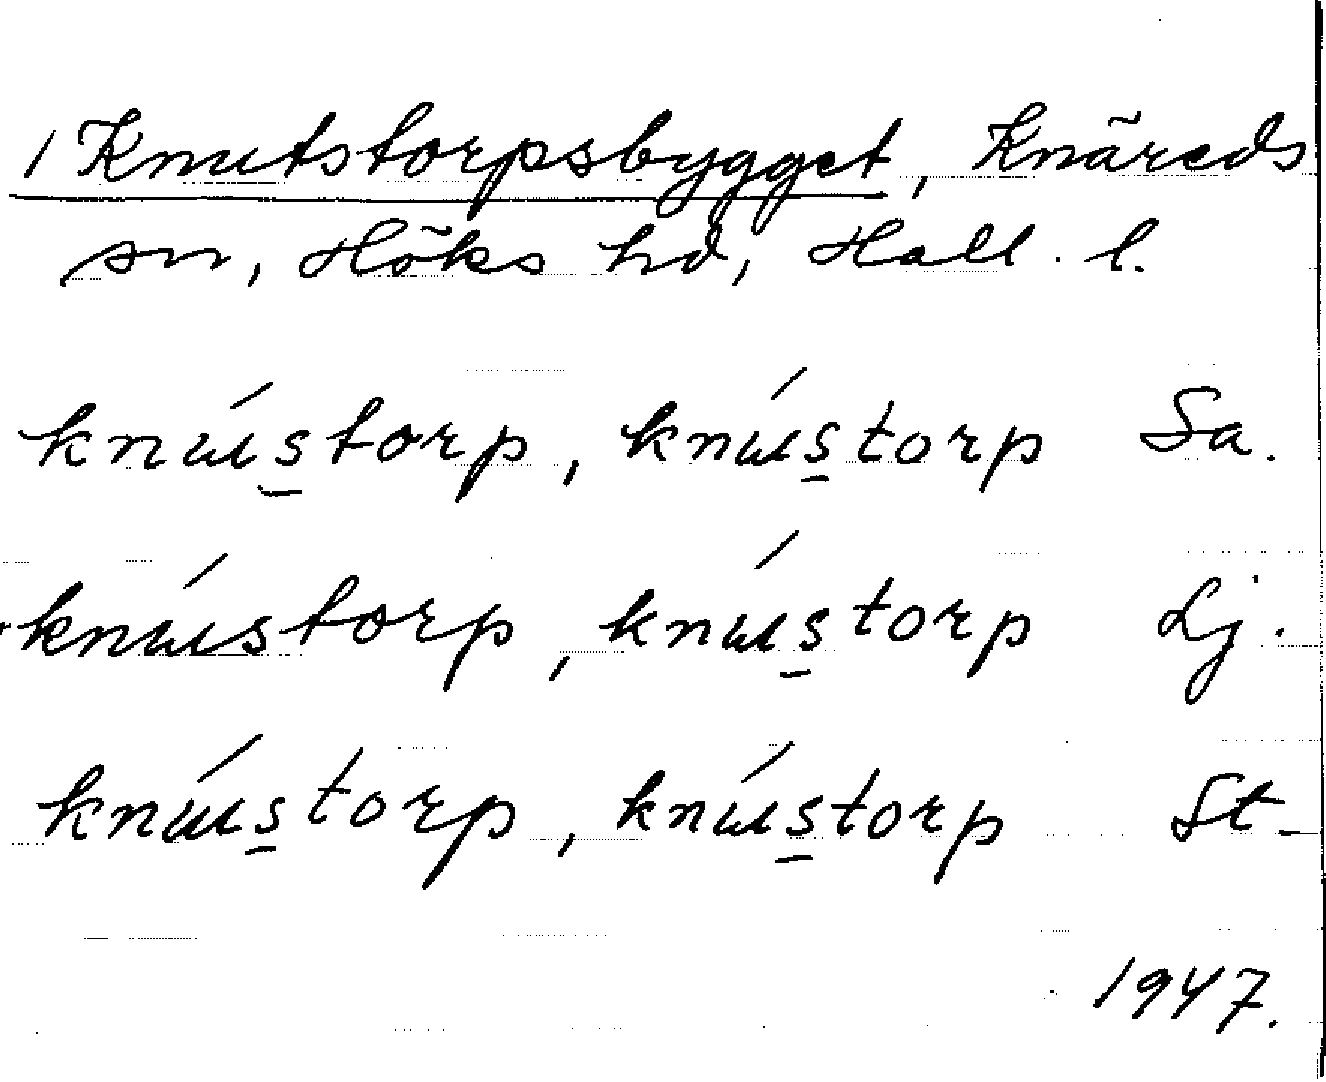 1 Knutstorpsbygget, Knäreds
sn, Höks hd, Hall. l.
knús̠torp, knús̠torp Sa.
knústorp, knús̠torp Lj.
knús̠torp, knús̠torp St.
1947.